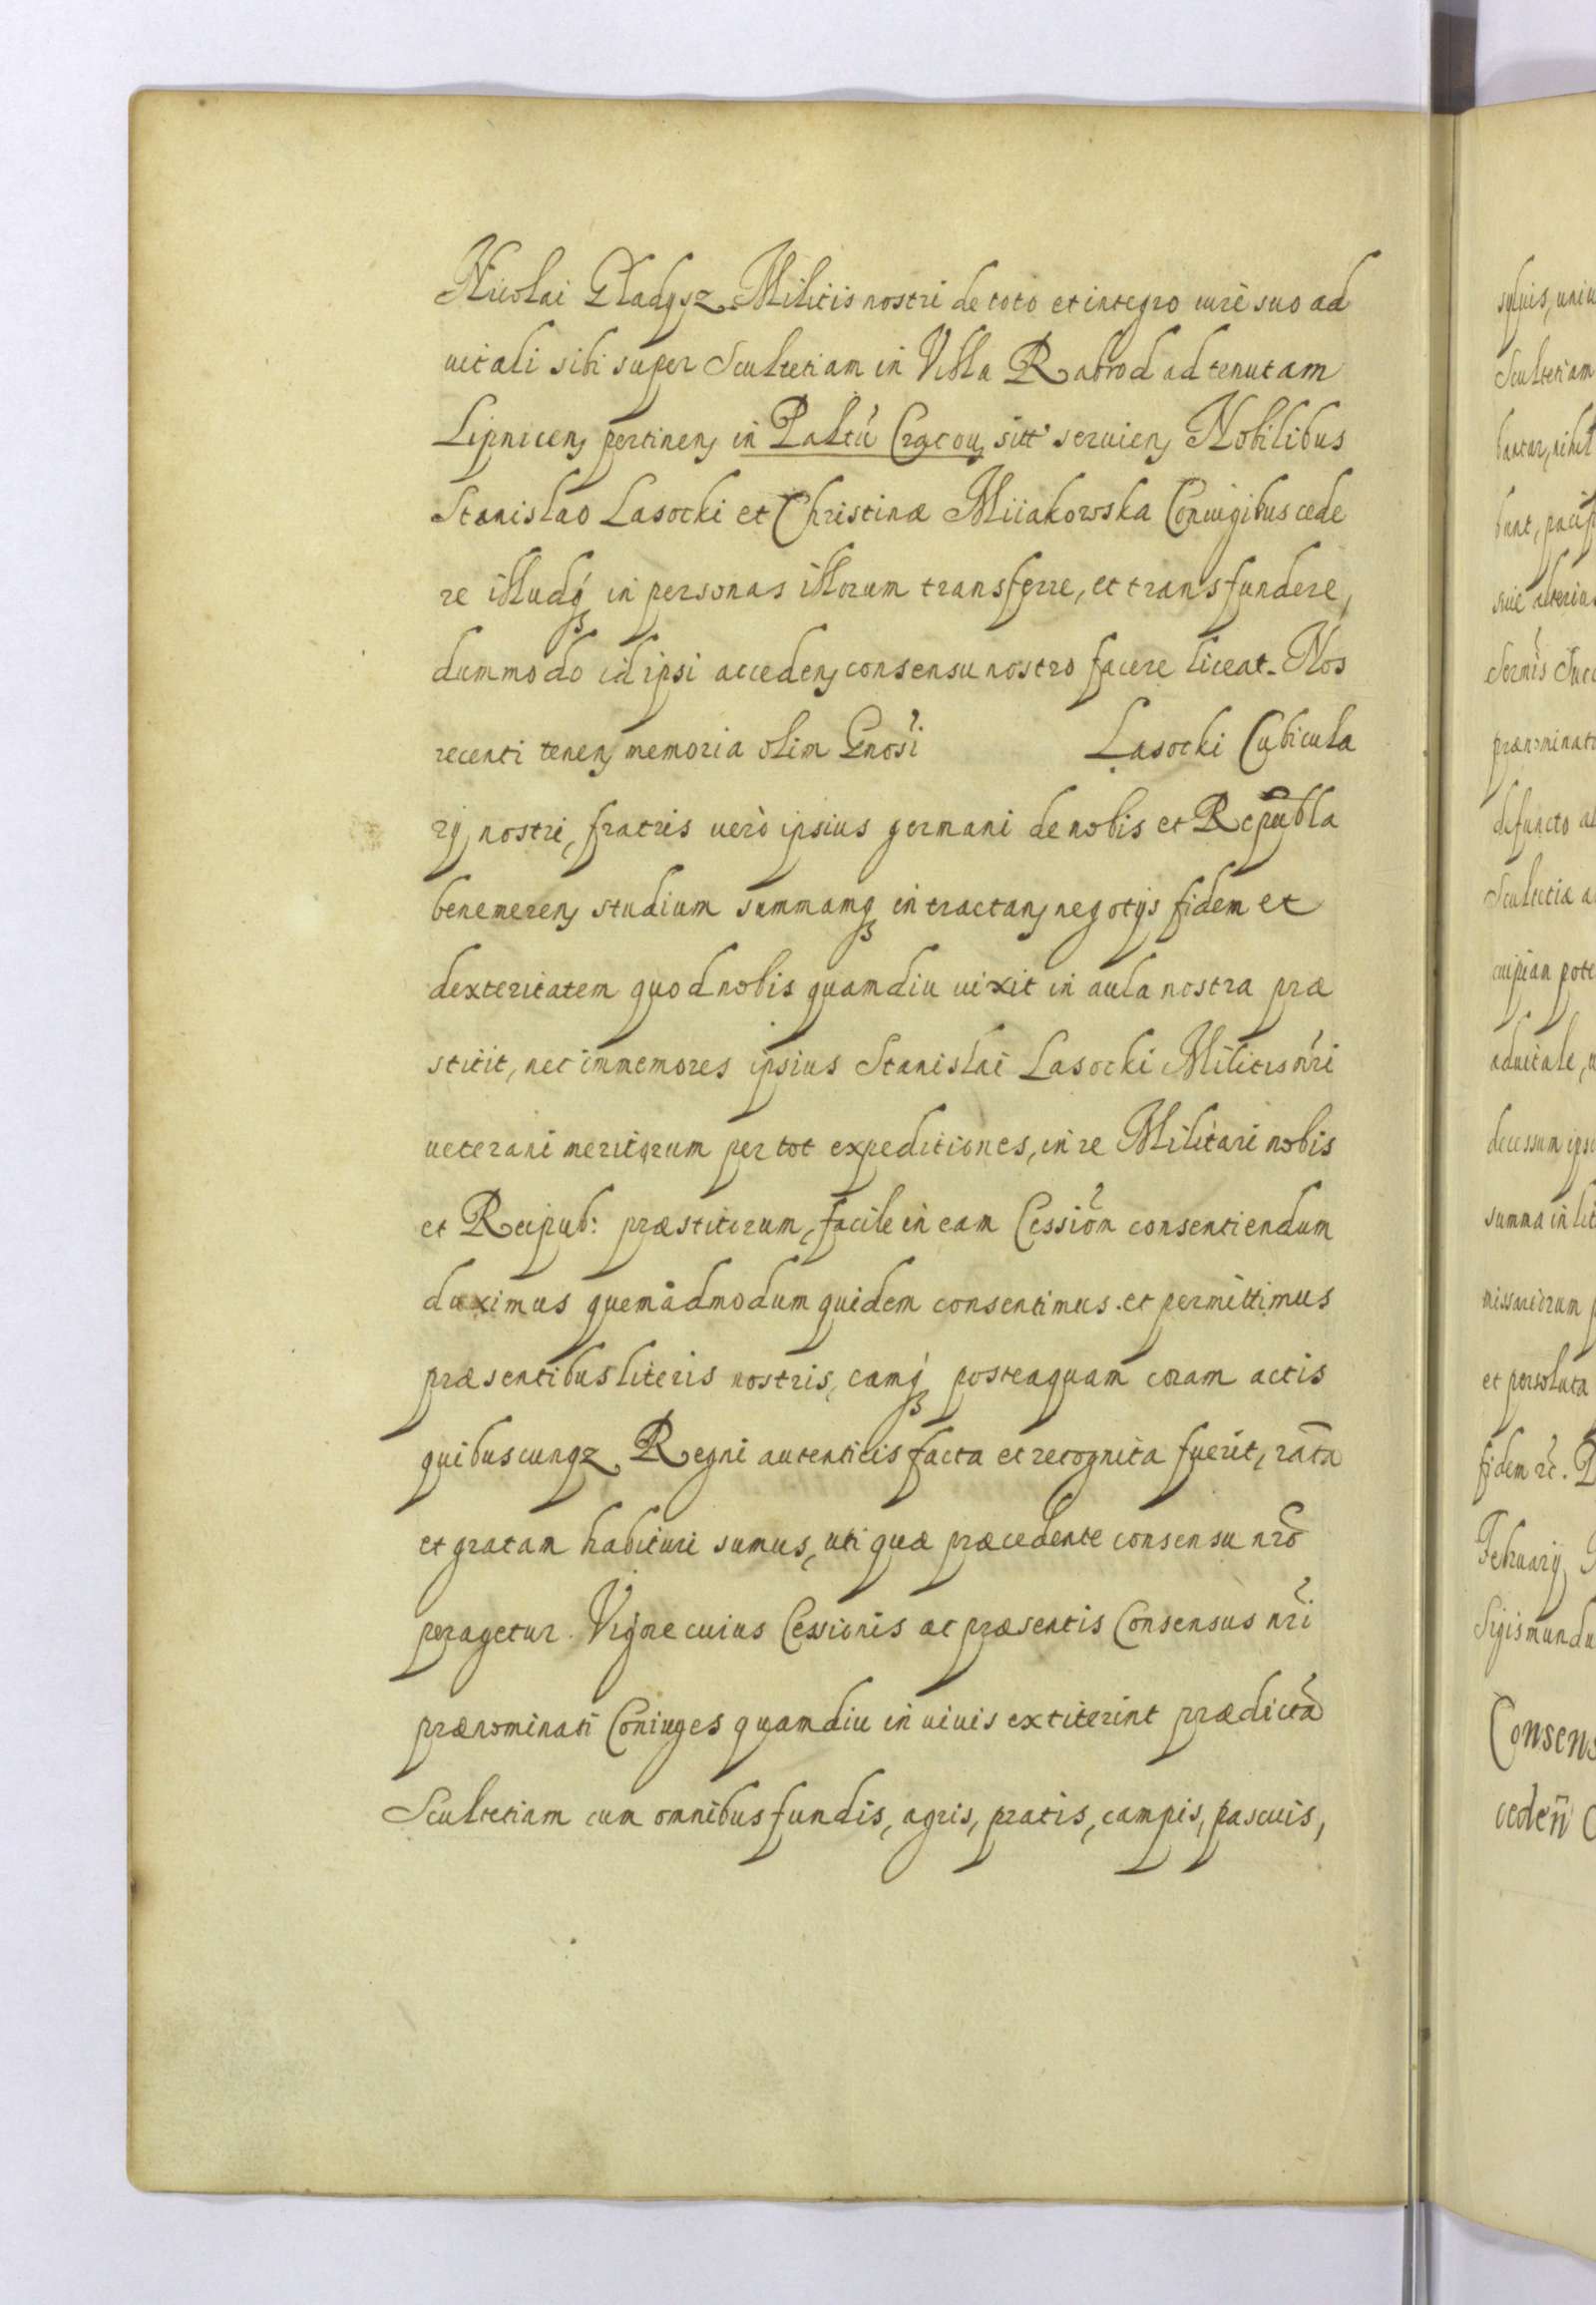 Nicolai Gladysz Militis nostri de toto et integro iure suo ad
uitali sibi super Scultetiam in Villa Rabrod ad tenutam
Lipnicen pertinen in Paltu Cracou sitt seruien Nobilibus
Stanislao Lasocki et Christinæ Miiakowska Coniugibus cede
re illudq in personas illorum transferre, et transfundere,
dummodo id ipsi acceden consensu nostro facere liceat. Nos
recenti tenen memoria olim Gnosi Lasocki Cubicula
rij nostri, fratris uerò ipsius germani de nobis et Republa
benemeren studium summamq in tractan negotijs fidem et
dexteritatem quod nobis quamdiu uixit in aula nostra præ
stitit, nec immemores ipsius Stanislai Lasocki Militis nri
ueterani meritorum per tot expeditiones, in re Militari nobis
et Reipub: præstitorum, facile in eam Cession consentiendum
duximus quemadmodum quidem consentimus. et permittimus
præsentibus literis nostris, eamq posteaquam coram actis
quibuscunqz Regni autenticis facta et recognita fuerit, rata
et gratam habituri sumus, uti quæ præcedente consensu nro
peragetur. Vigore cuius Cessionis ac præsentis Consensus nri
prænominati Coniuges quamdiu in uiuis extiterint prædicta
Scultetiam cum omnibus fundis, agris, pratis, campis, pascuis,